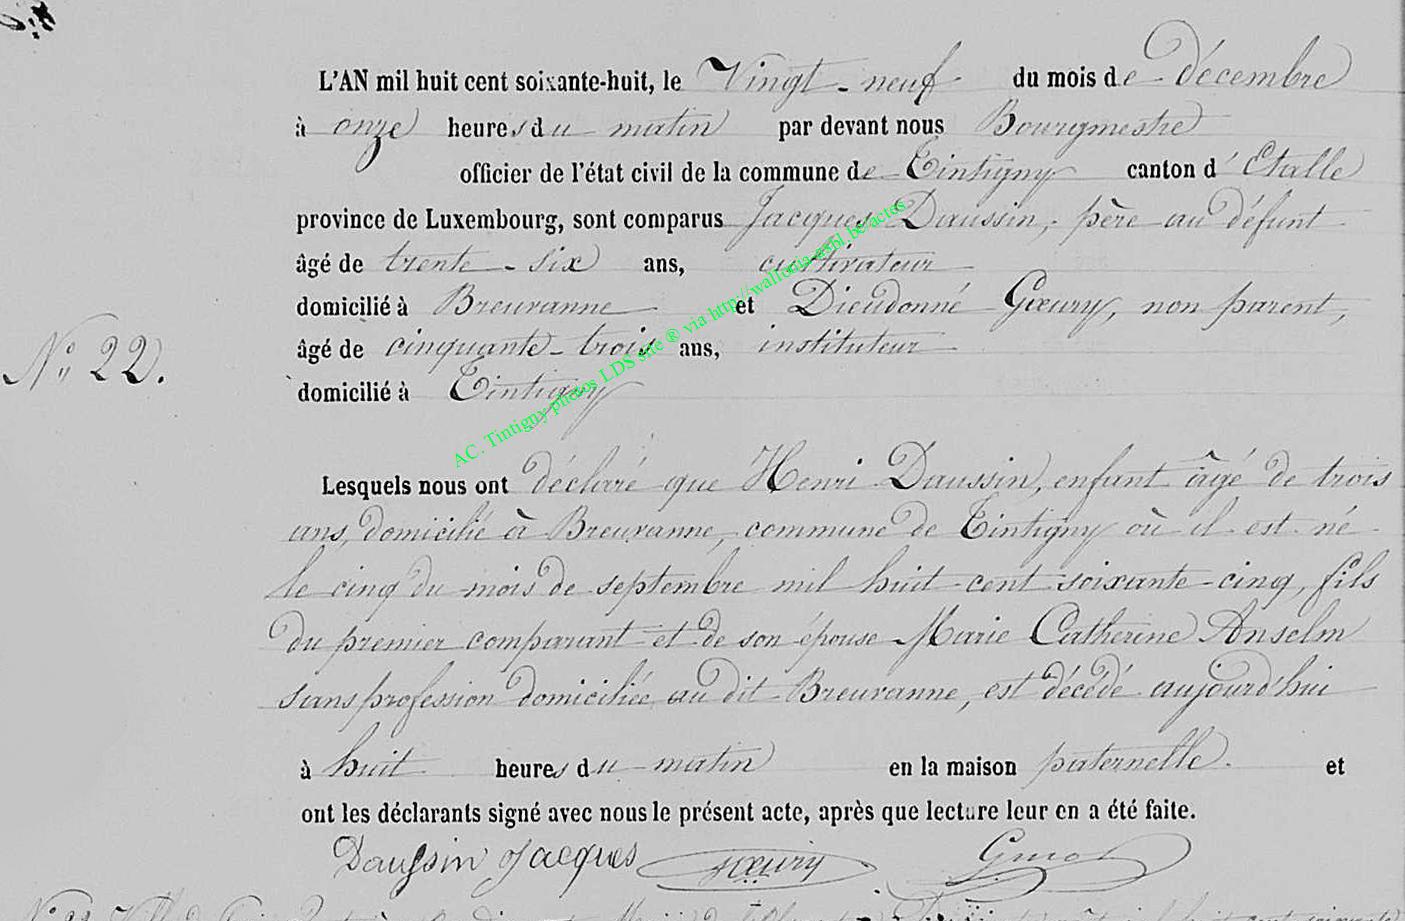 L'AN mil huit cent soixante-huit, le Vingt-neuf du mois de décembre
à onze heures du matin par devant nous Bourgmestre
officier de l'état civil de la commune de Tintigny canton d'Etalle
province de Luxembourg, sont comparus Jacques Daussin, père au défunt
âgé de trente-six ans, cultivateur
domicilié à Breuvanne et Dieudonné Gœury, non parent,
âgé de cinquante-trois ans, instituteur
N° 22.
domicilié à Tintigny
AC. Tintigny photos LDS site ® via http://wallonia-asbl.be/actes
Lesquels nous ont déclaré que Henri Daussin, enfant âgé de trois
ans, domicilié à Breuvanne, commune de Tintigny où il est né
le cinq du mois de septembre mil huit cent soixante-cinq, fils
du premier comparant et de son épouse Marie Catherine Anselm
sans profession domiciliée au dit Breuvanne, est décédé aujourd'hui
à huit heures du matin en la maison paternelle. et
ont les déclarants signé avec nous le présent acte, après que lecture leur en a été faite.
Daussin Jacques Gœury